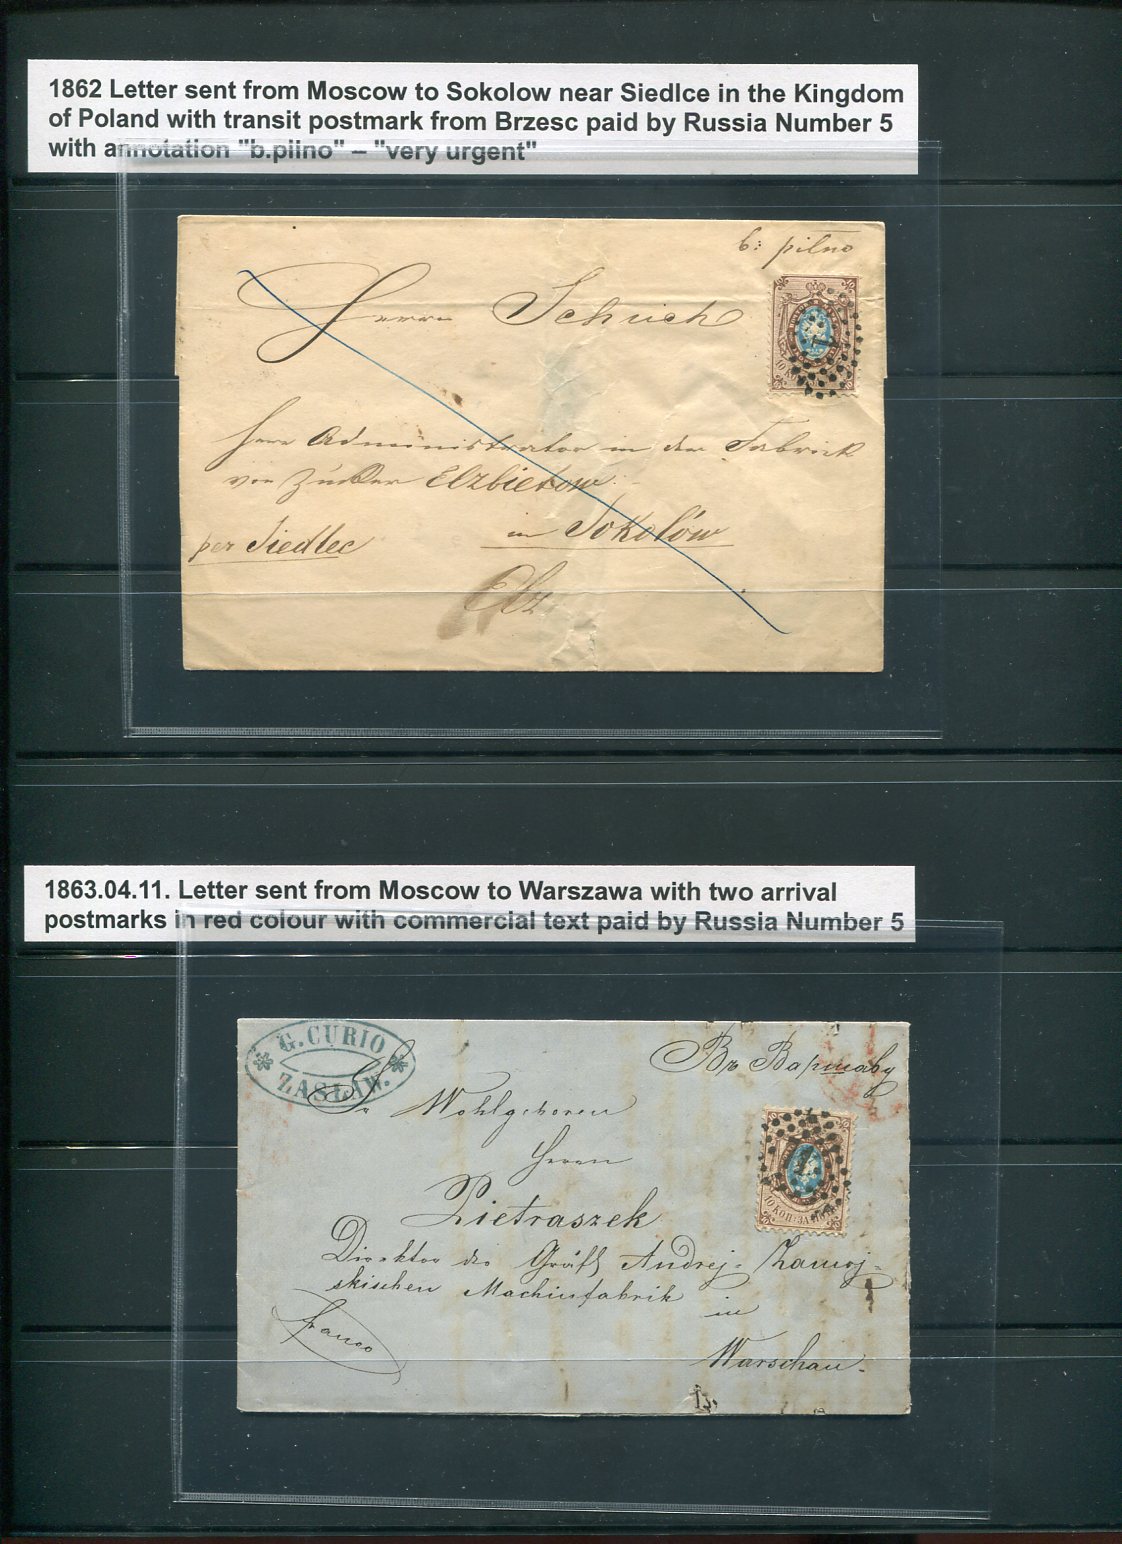 1862 Letter sent from Moscow to Sokolow near Siedlce in the Kingdom
of Poland with transit postmark from Brzesc paid by Russia Number 5
with annotation "b.pilno" – "very urgent"
b: pilno
Herrn Schuch
10 КОП
Herr Administrator in der Fabrick
von Zucker Elzbietow
in Sokołów
per Siedlec
Elz
1863.04.11. Letter sent from Moscow to Warszawa with two arrival
postmarks in red colour with commercial text paid by Russia Number 5
G. CURIO
ZASŁAW.
Въ Варшаву
Sr Wohlgeboren
Herrn
1
10 КОП. ЗА ЛОТЪ
Pietraszek
Direktor der Gräfl Andrej Zamoj-
skischen Machinfabrik
in
franco
Warschau.